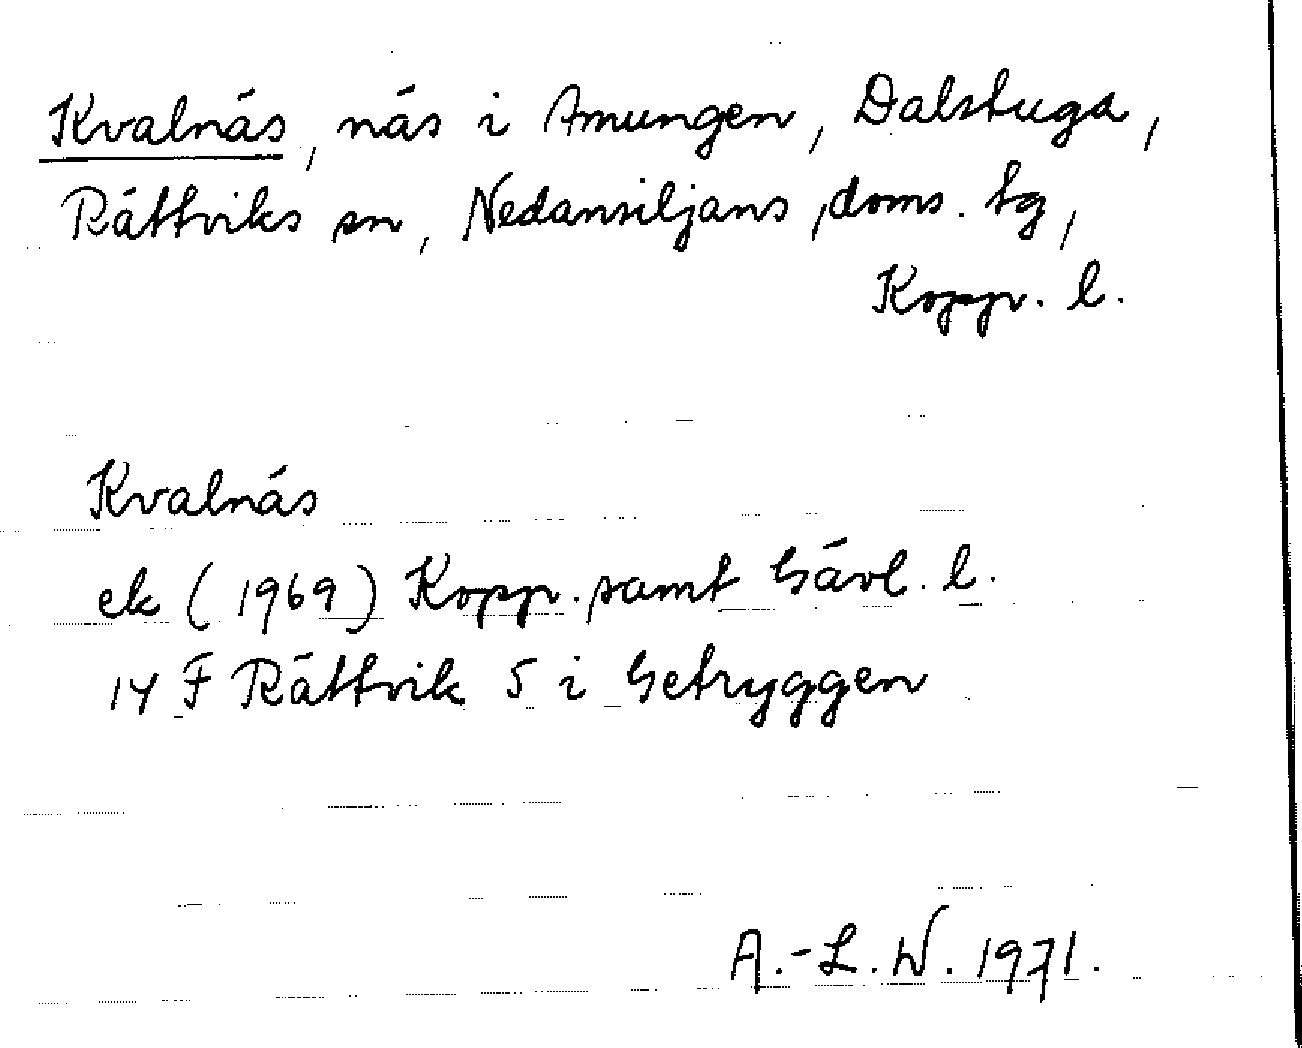 Kvalnäs, näs i Amungen, Dalstuga,
Rättviks sn, Nedansiljans doms. tg,
Kopp. l.
Kvalnäs
ek (1969) Kopp. samt Gävl. l.
14 F Rättvik 5 i Getryggen
A.-L. W. 1971.